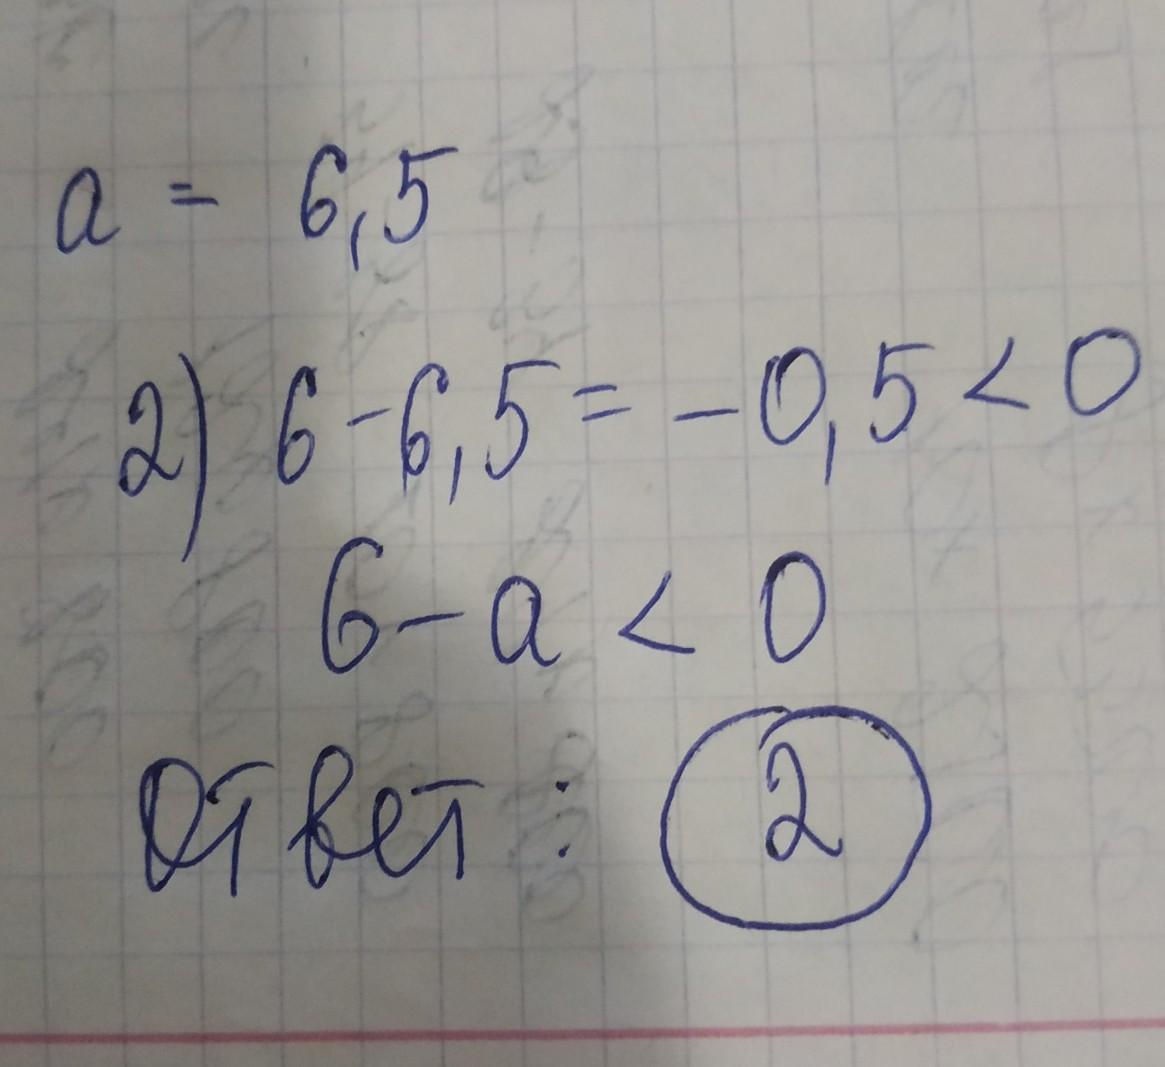 a = 6,5
2) 6-6,5 = -0,5 < 0
6 - a < 0
Ответ : 2